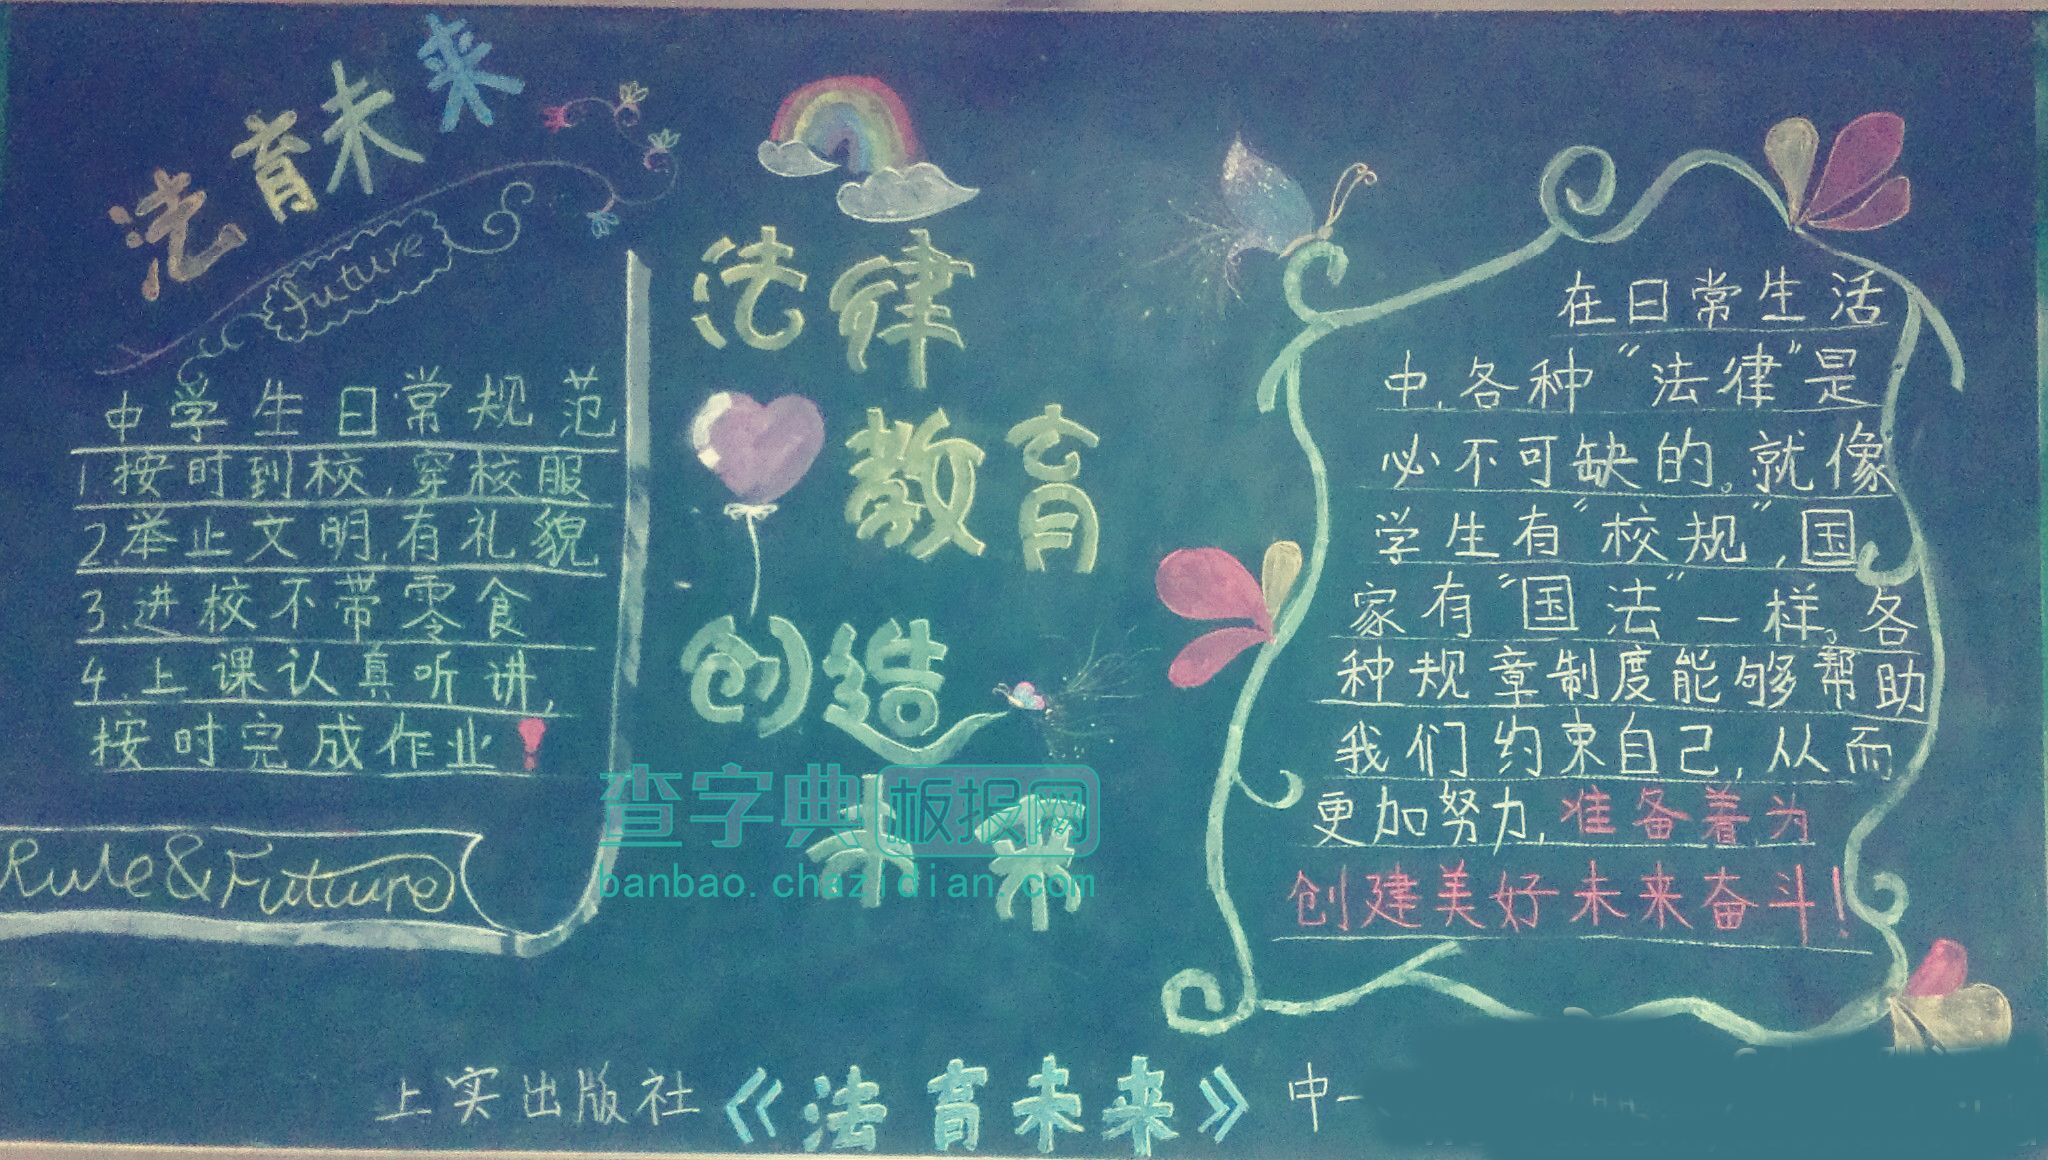 法育未来
future
中学生日常规范
1.按时到校,穿校服
2.举止文明,有礼貌
3.进校不带零食
4.上课认真听讲,
按时完成作业!
Rule&Future
法律
教育
创造
未来
查字典板报网
banbao.chazidian.com
在日常生活
中,各种“法律”是
必不可缺的。就像
学生有“校规”,国
家有“国法”一样。各
种规章制度能够帮助
我们约束自己,从而
更加努力,准备着为
创建美好未来奋斗!
上实出版社《法育未来》中一